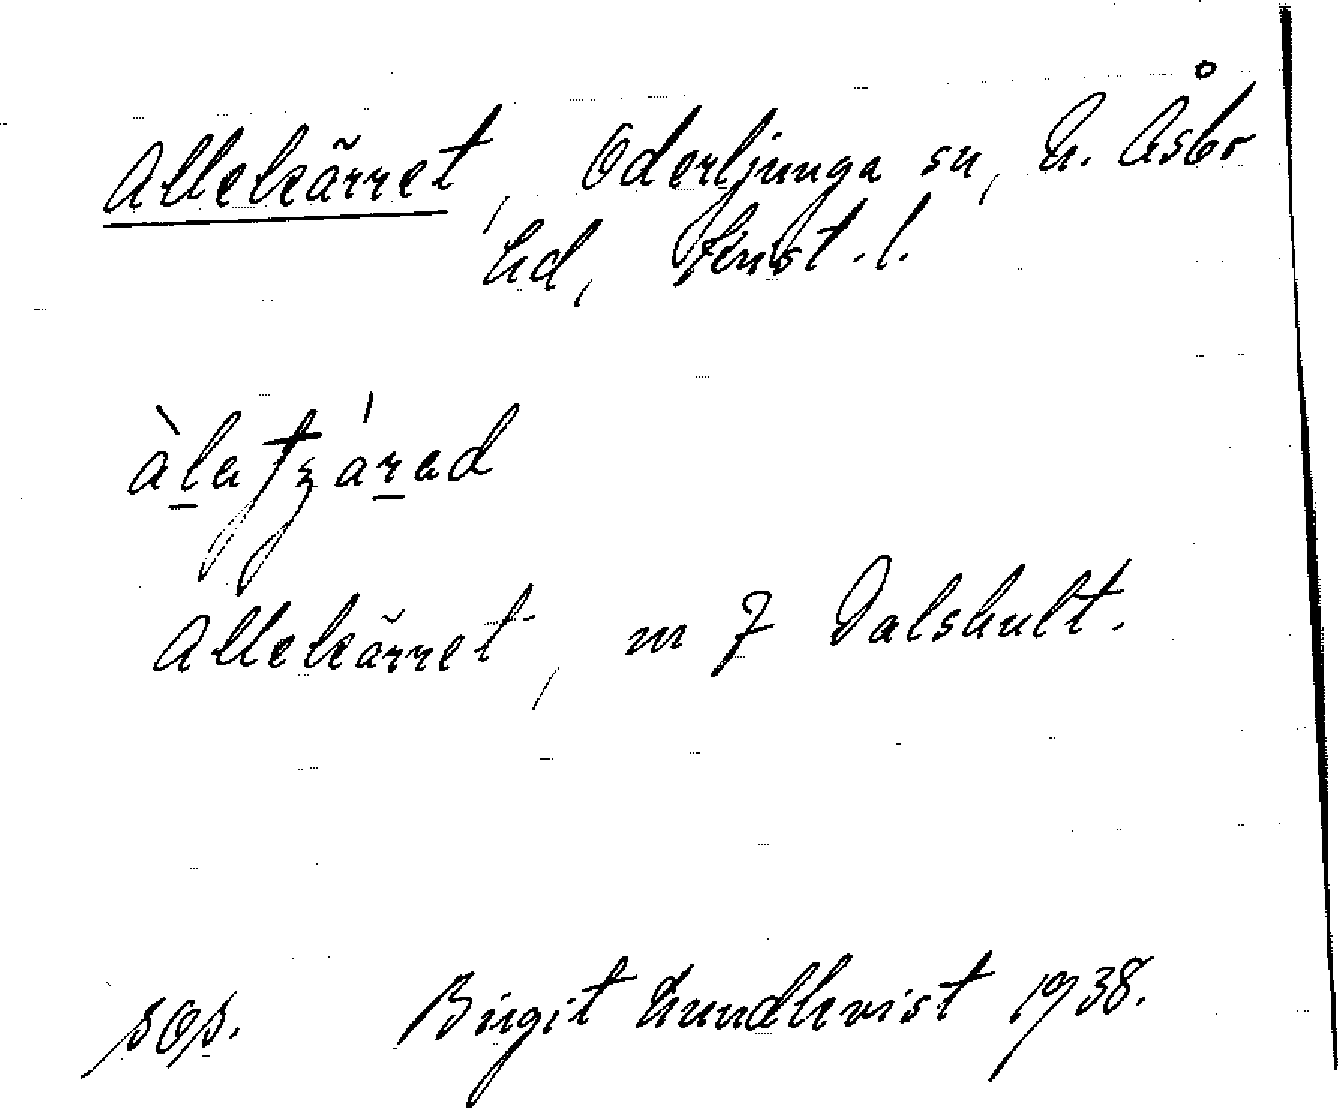 Allekärret, Oderljunga sn, N. Åsbo
hd, Krist. l.
àlatʃárad
Allekärret, m 7 Dalshult.
sOs. Birgit Lundkvist 1938.